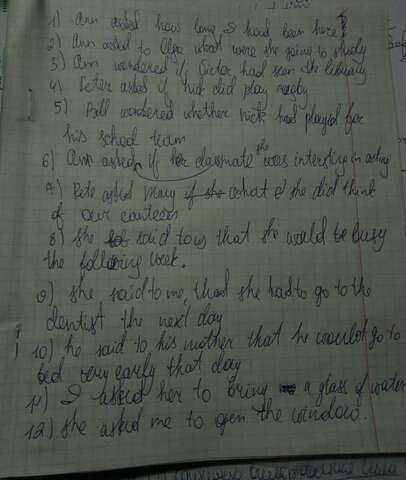 1) Ann asked how long I had been here?
2) Ann asked to Olga what were she going to study
3) Ann wondered if Victor had seen the library
4) Peter asked if Nick did play rugby
5) Bill wondered whether Nick had played for
his school team
6) Ann asked if her classmate she was interesting in acting
7) Pete asked Mary if she what she did think
of our canteen
8) She said to us that she would be busy
the following week.
9) She said to me, that she had to go to the
dentist the next day
10) he said to his mother that he would go to
bed very early that day
11) I asked her to bring a glass of water
12) She asked me to open the window.